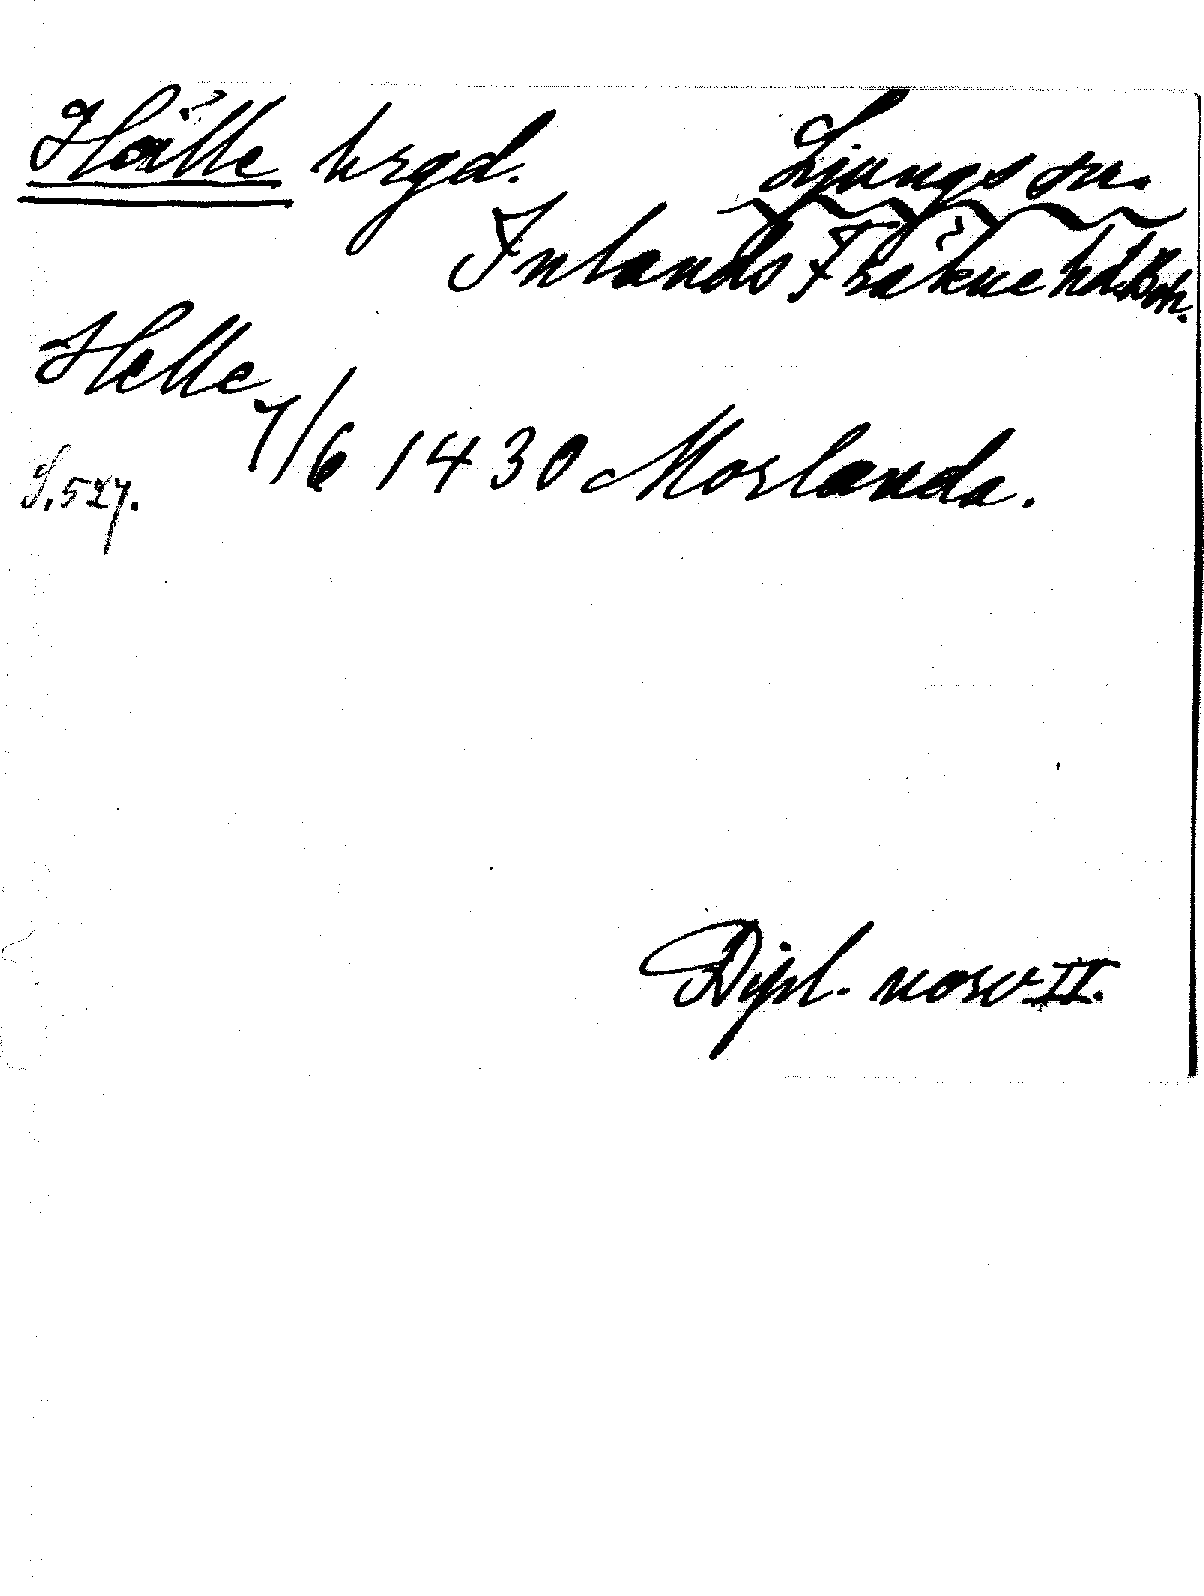 Hälle hrgd. Ljungs sn.
Inlands Fräkne hd. Boh.
Helle
7/6 1430 Morlanda.
S. 527.
Dipl. norv II.